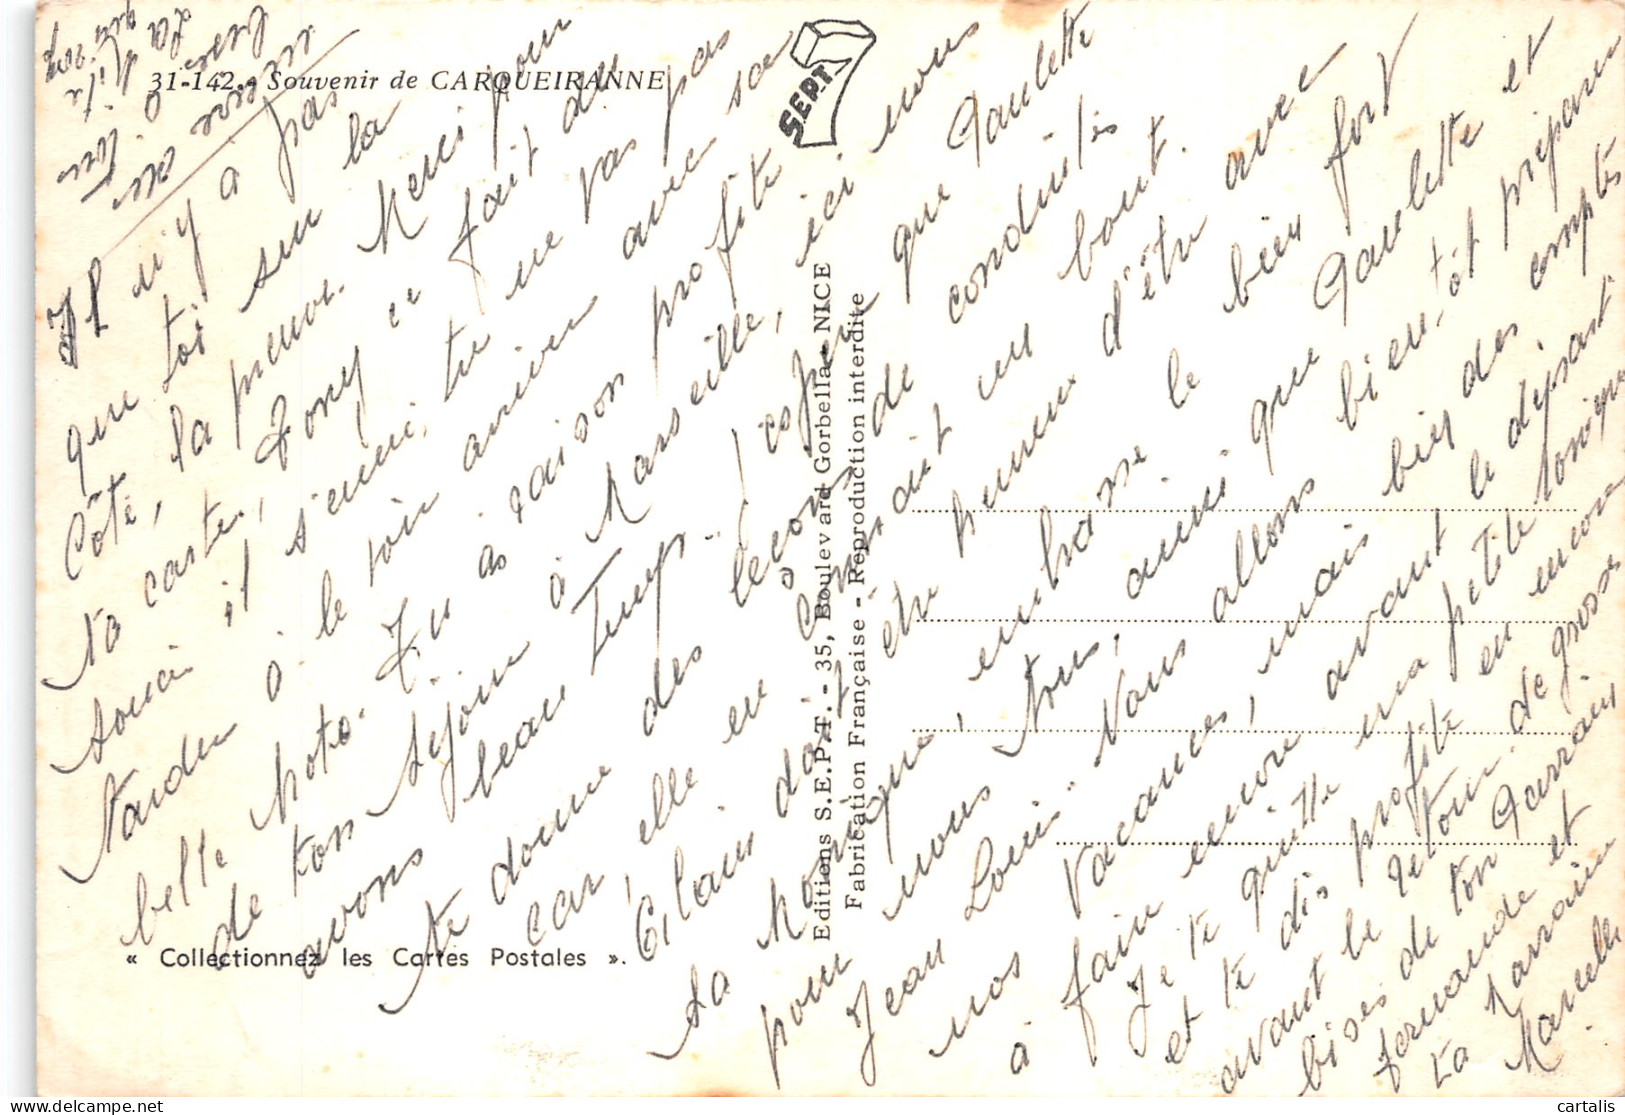 31-142 - Souvenir de CARQUEIRANNE
SEPT.
Il n'y a pas
que toi sur la
Côte, la preuve. Merci pour
ta carte, Tony ce fait du
souci il s'ennui, tu ne vas pas
tarder à le voir arriver avec sa
belle moto. Tu as raison profite
de ton séjour à Marseille, ici nous
avons beau Temps. J'espère que Paulette
te donne des leçons de conduites
car elle en connait un bout.
Gilain doit être heureux d'être avec
sa
pour nous, embrasse le bien fort
nous Tous, ainsi que Paulette et
Jean Louis. Nous allons bientôt préparer
nos Vacances, mais bien des comptes
à faire encore avant le départ
Je te quitte ma petite
et te dis profite en encore
avant le retour. de grosse
bises de ton Parrain
fernande et
ta Marraine
Marcelle
Editions S.E.P.T. - 35, Boulevard Gorbella - NICE
Fabrication Française - Reproduction interdite
« Collectionnez les Cartes Postales ».
cartalis